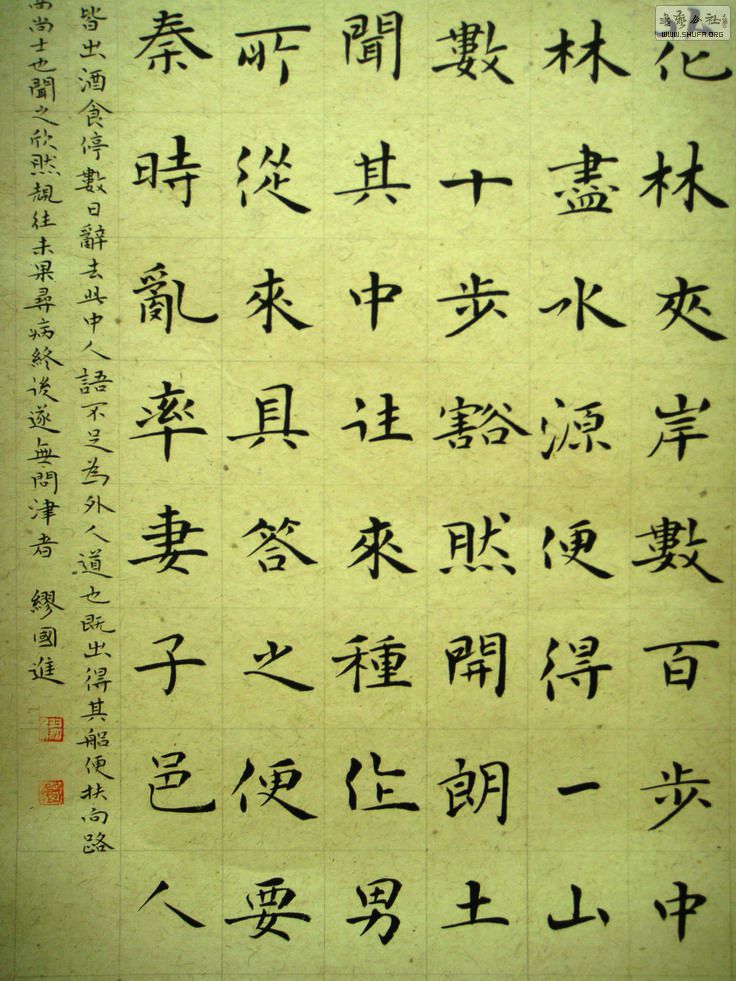 花林夾岸數百步中
林盡水源便得一山
數十步豁然開朗土
聞其中往來種作男
所從來具答之便要
秦時亂率妻子邑人
皆出酒食停數日辭去此中人語不足為外人道也既出得其船便扶向路
尚士也聞之欣然規往未果尋病終後遂無問津者 繆國進
書藝公社
WWW.SHUFA.ORG